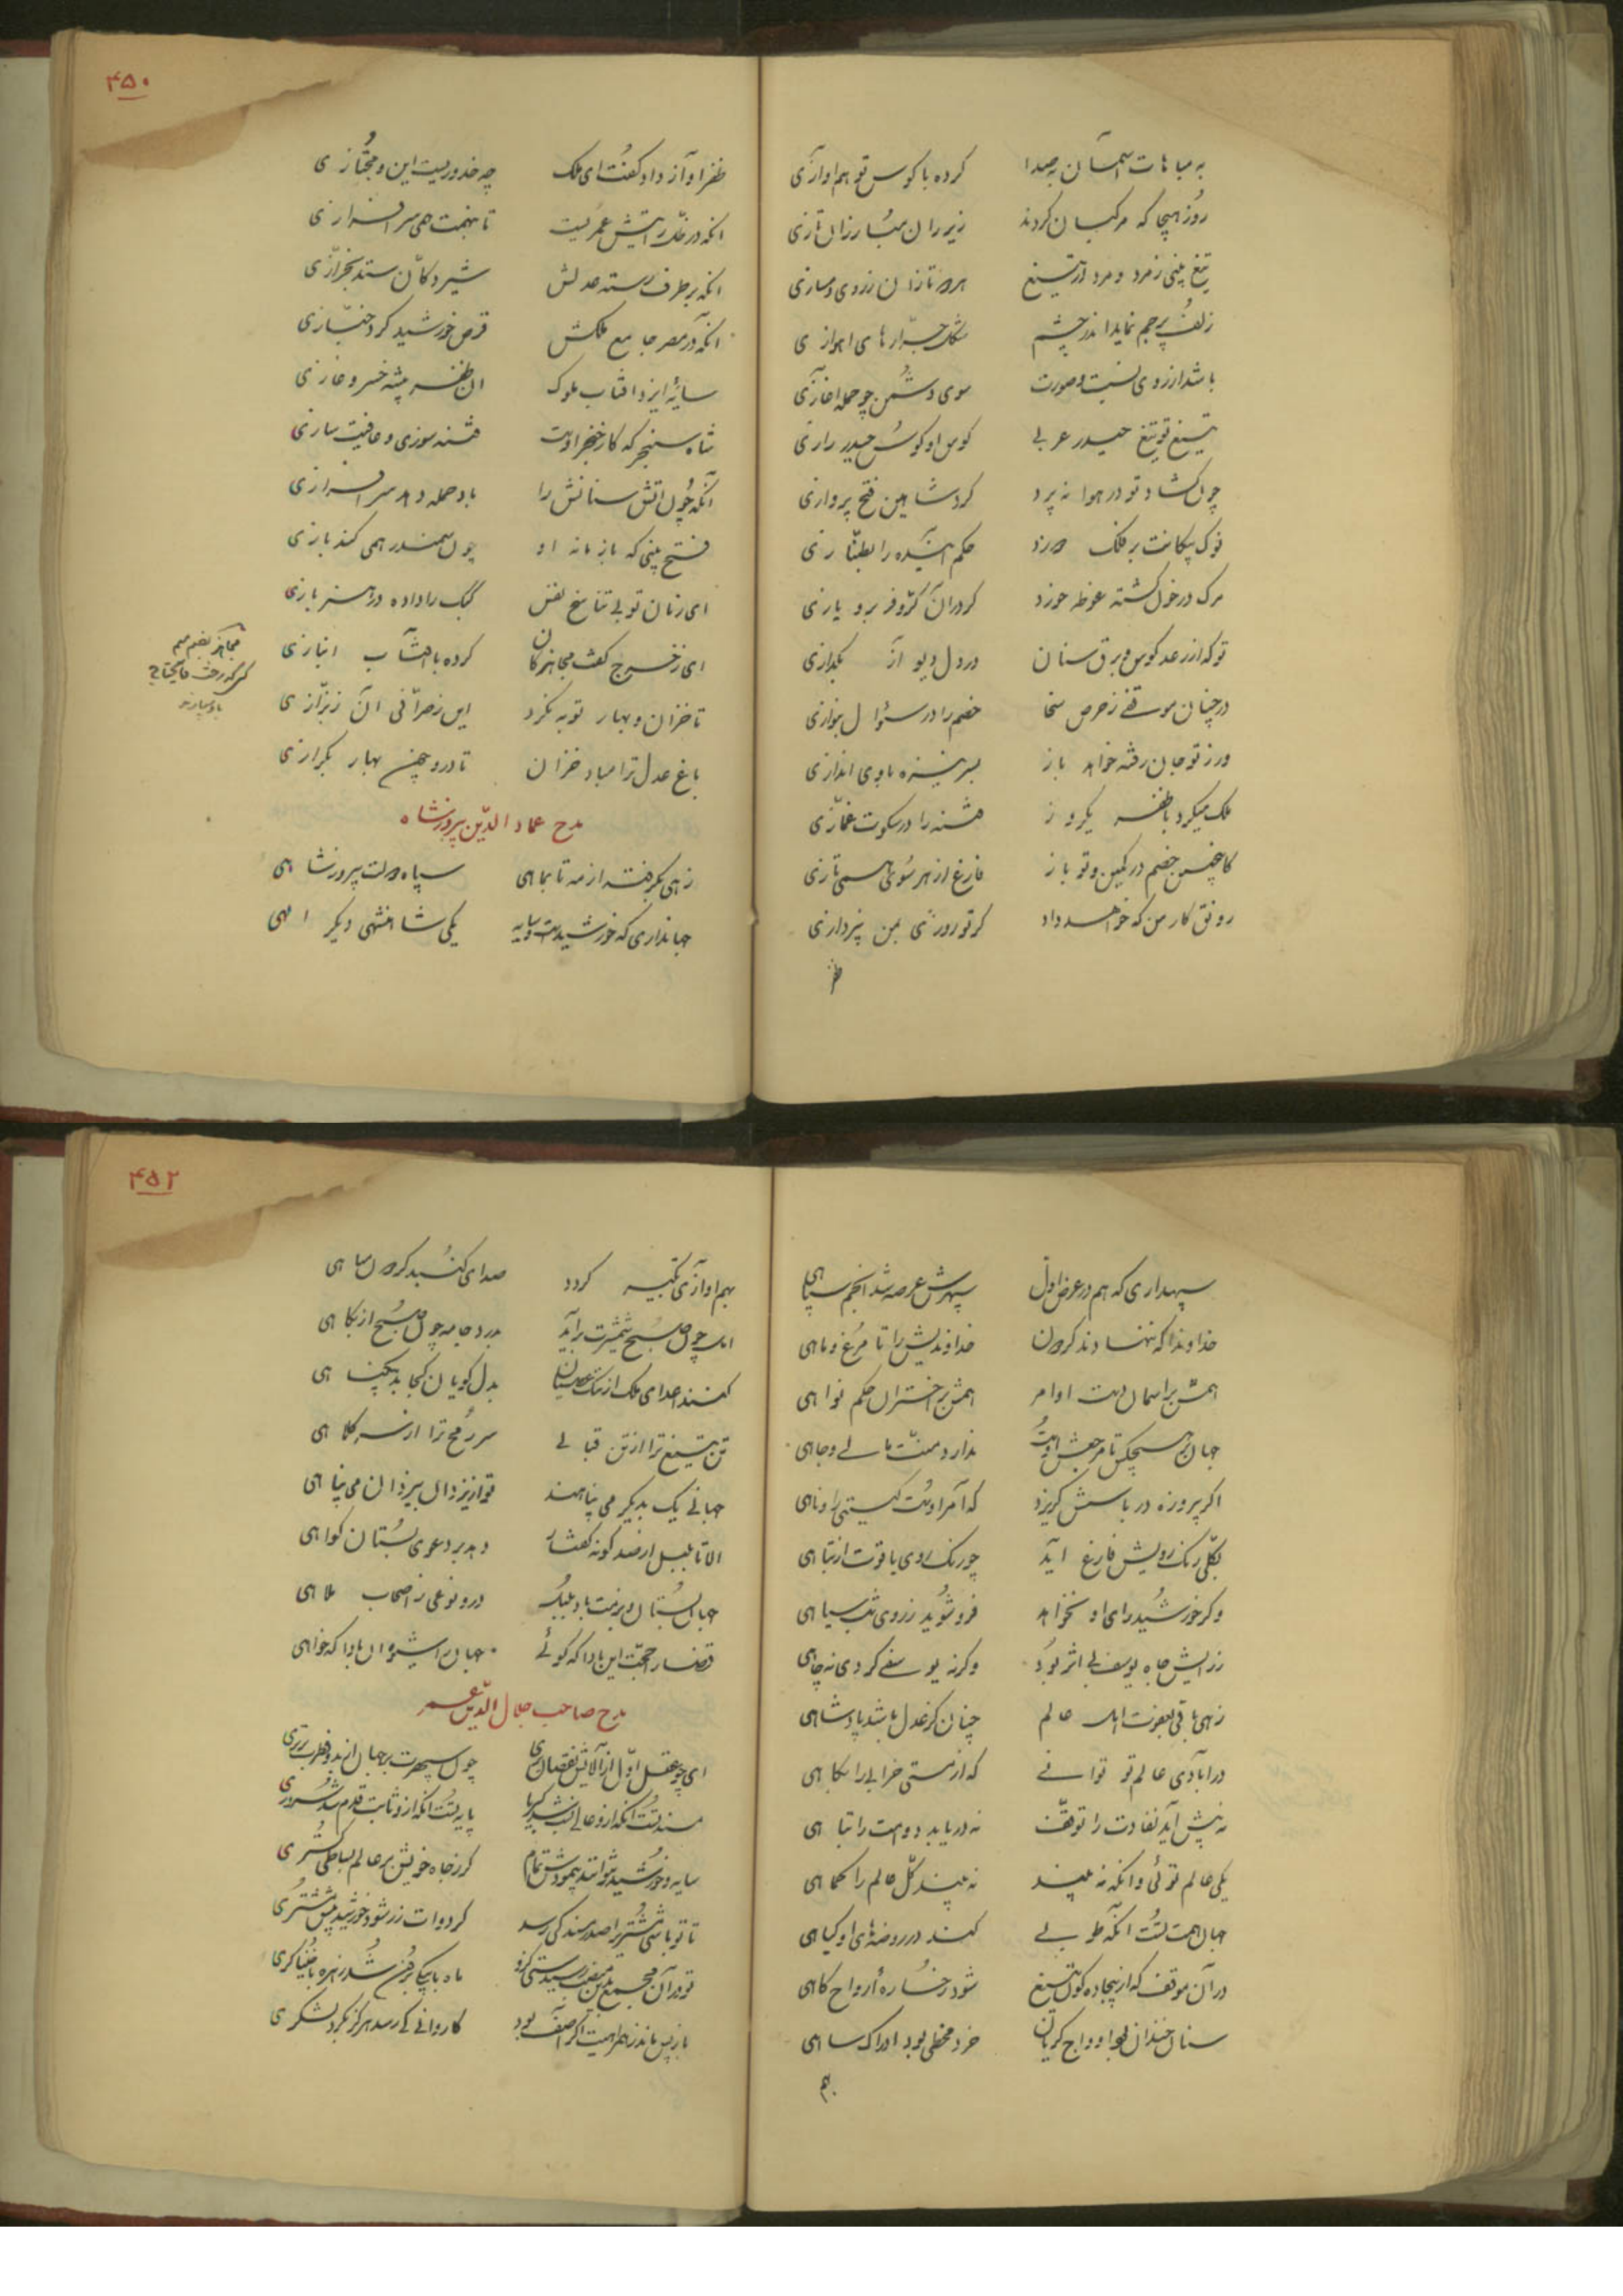 به مباهات آسمان به صدا کرده با کوس تو هم‌اوازی
روز هیجا که مرکبان کردند زیر ران مبارزان تازی
تیغ بینی ز مرد و مرد از تیغ
زلف پرچم نماید اندر چشم شکل جراره‌های اهوازی
باشد از روی نسبت و صورت سوی دشمن چو حمله اغازی
تیغ تو تیغ حیدر عربی کوس او کوس حیدر رازی
چون کشاد تو در هوا به پرد کرد شاهین فتح پروازی
نوک پیکانت بر فلک دوزد حکم آینده را بطنازی
مرک در خون کشته غوطه خورد کر در آن کروفر برو یازی
تو که از رعد کوس و برق سنان در دل دیو از بکدازی
در چنان موقفی ز حرص سخا خصم را در سؤال بنوازی
ور ز تو جان رفته خواهد باز بسر نیزه باوی اندازی
ملک میکرد با ظفر یکروز فتنه را در سکوت غمازی
کاخر خصم در کمین و تو باز فارغ از هر سوئی همی تازی
رونق کار من که خواهد داد کر تو روزی بمن نپردازی
ظفر
۴۵۰
ظفر اواز داد و کفت ای ملک چه حدودیست این و مجتازی
آنکه در ظل رایتش عمریست تا بنهمت همی سرافرازی
آنکه بر طرف رسته عدلش شیر دکان ستد بخرازی
آنکه در مصر جامع ملکش قرص خورشید کرد خبازی
سایه ایزد آفتاب ملوک آن ظفر پیشه خسرو غازی
شاه سنجر که کار خنجر اوست فتنه سوزی و عافیت سازی
آنکه چون آتش سنانش را باد حمله دهد سرافرازی
فتح بینی که با زبانه او چون سمندر همی کند بازی
ای زمان تو بی تناسخ نفس کبک را داده در هنر بازی
ای ز خرج کفت مجاهزکان کرده با آفتاب انبازی
مجاهز بضم میم
کسی که رخت
تا خزان و بهار توبه نکرد این ز صرافی آن ز بزازی
باغ عدل ترا مباد خزان تا درو چمن بهار بکرازی
مدح عماد الدین پیروزشاه
زهی بکرفته از مه تا بماهی سپاه دولت پیروزشاهی
جهانداری که خورشیدست و سایه یکی شاهنشهی دیکر الهی
سپهداری که هم در عرض اول سپهرش عرصه شد انجم سپاهی
خداوندا که بنهادند کردن خداوندیش را تا مرغ و ماهی
همش بر آسمان دست اوامر همش بر اختران حکم نواهی
جهان بر هیچکس تا مرجعش اوست ندارد منت مالی و جاهی
اکر پیروزه در باسش کریزد که آمر اوست کیتی را و ناهی
بکلی رنک رویش فارغ آید چو رنک روی یاقوت از تباهی
وکر خورشید رای او بخواهد فرو شوید ز روی شب سیاهی
ز رایش جاه یوسف بی اثر بود وکرنه یوسفی کردی نه چاهی
زهی باقی بعونت عالم چنان کز عدل باشد پادشاهی
در آبادی عالم تو توانی که از مستی خرابی را بکاهی
نه پیش آید نفاذت را توقف نه دریابد دوامت را تباهی
یکی عالم توئی وانکه نه بیند نه بیند کل عالم را کماهی
جهان همت تست آنکه طوبی کند در روضهای او کیاهی
در آن موقف که از بیجاده کون تیغ شود رخساره ارواح کاهی
سنان خندان بود و ارواح کریان خرد مخطی بود ادراک ساهی
بهم
۴۵۲
بهم‌آوازی تکبیر کردد صدای کنبد کردون مباهی
چون صبح شمشیرت برآید بدرد جامه چون صبح از پکاهی
کنند اعدای ملک از ننک عصیان بدل کویان کجا بد بیکناهی
تن تیغ ترا از تن قبائی سر رمح ترا از سر کلاهی
جهانی یک بدیکر می پناهند تو از یزدان بیزدان می پناهی
الا تا بلبل از صد کونه کفتار دهد بر دعوی بستان کواهی
جهان بستان و بزمت باد و بلبل درو نوعی ز اصحاب ملاهی
قضا را حجت این بادا که کوئی جهان را شیوه آن بادا که خواهی
مدح صاحب جلال الدین عمر
ای چو عقل اول از آلایش نقصان بری چون سپهرت بر جهان از بدو فطرت برتری
مسند تست آنکه از و عالی نسب شد کبریا پایه تست آنکه از و ثابت قدم شد سروری
سایه و خورشید نتوانند پیمودش تمام کر ز جاه خویش بر عالم بساطی کستری
تا تو باشی مشتری را صدر و مسند کی رسد کر دوات زر شود خورشید پیش مشتری
تو در آن مجمع بدین منصب رسیدستی کزو ماه با پیکی برون شد زهره با خنیاکری
باز پس ماند ز همراهیت اکر آصف بود کاروانی کی رسد هرکز بکرد لشکری